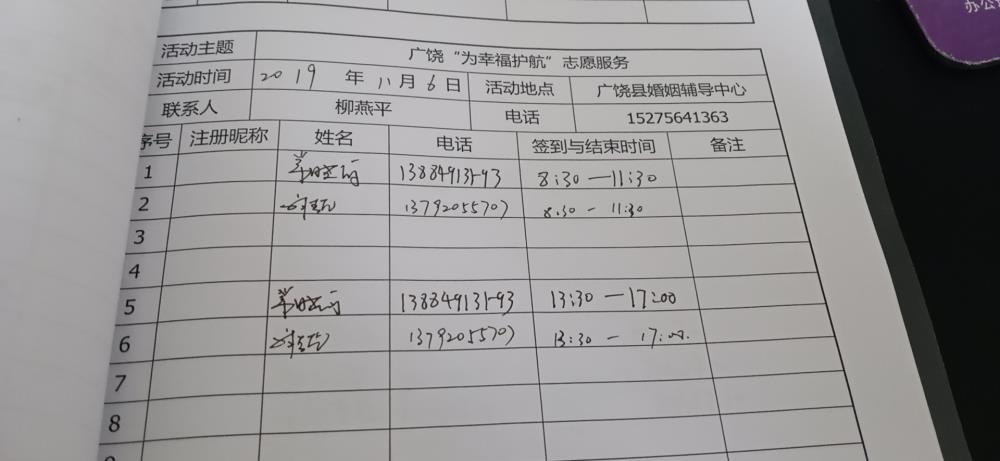 办公
活动主题 广饶“为幸福护航”志愿服务
活动时间 2019 年 11 月 6 日 活动地点 广饶县婚姻辅导中心
联系人 柳燕平 电话 15275641363
序号 注册昵称 姓名 电话 签到与结束时间 备注
1 8:30—11:30
2 13792055707 8:30 - 11:30
3
4
5 13:30—17:00
6 13792055707 13:30 - 17:00.
7
8